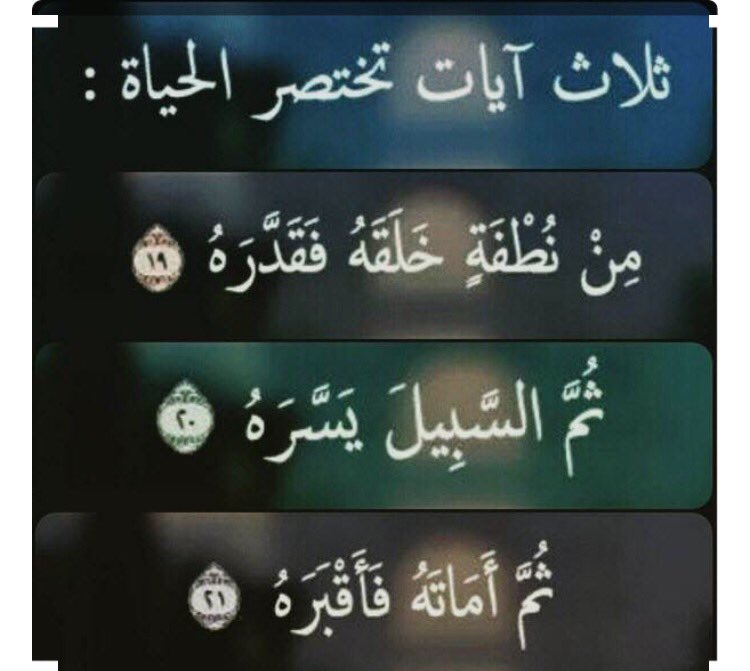 ثلاث آيات تختصر الحياة :
مِنْ نُطْفَةٍ خَلَقَهُ فَقَدَّرَهُ ١٩
ثُمَّ السَّبِيلَ يَسَّرَهُ ٢٠
ثُمَّ أَمَاتَهُ فَأَقْبَرَهُ ٢١